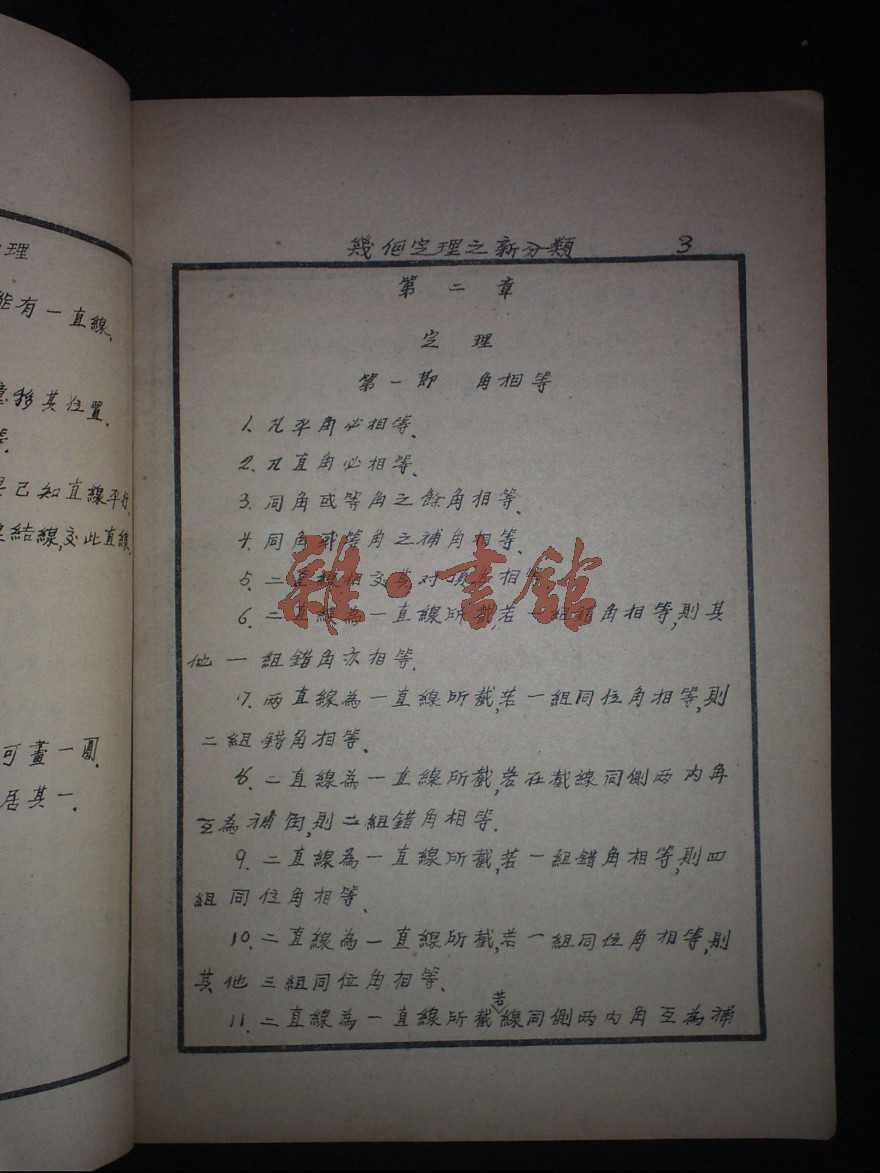 幾何定理之新分類 3
第二章
定理
第一節 角相等
1. 凡平角必相等.
2. 凡直角必相等.
3. 同角或等角之餘角相等.
4. 同角或等角之補角相等.
5. 二直線相交其对頂角相等.
6. 二直線為一直線所截,若一組錯角相等,則其
他一組錯角亦相等.
7. 两直線為一直線所截,若一組同位角相等,則
二組錯角相等.
8. 二直線為一直線所截,若在截線同側两内角
互為補角,則二組錯角相等.
9. 二直線為一直線所截,若一組錯角相等,則四
組同位角相等.
10. 二直線為一直線所截,若一組同位角相等,則
其他三組同位角相等.
11. 二直線為一直線所截若線同側两内角互為補
理
能有一直線,
移其位置.
等.
已知直線平行.
結線,交此直線.
可畫一圓.
居其一.
雜·書館